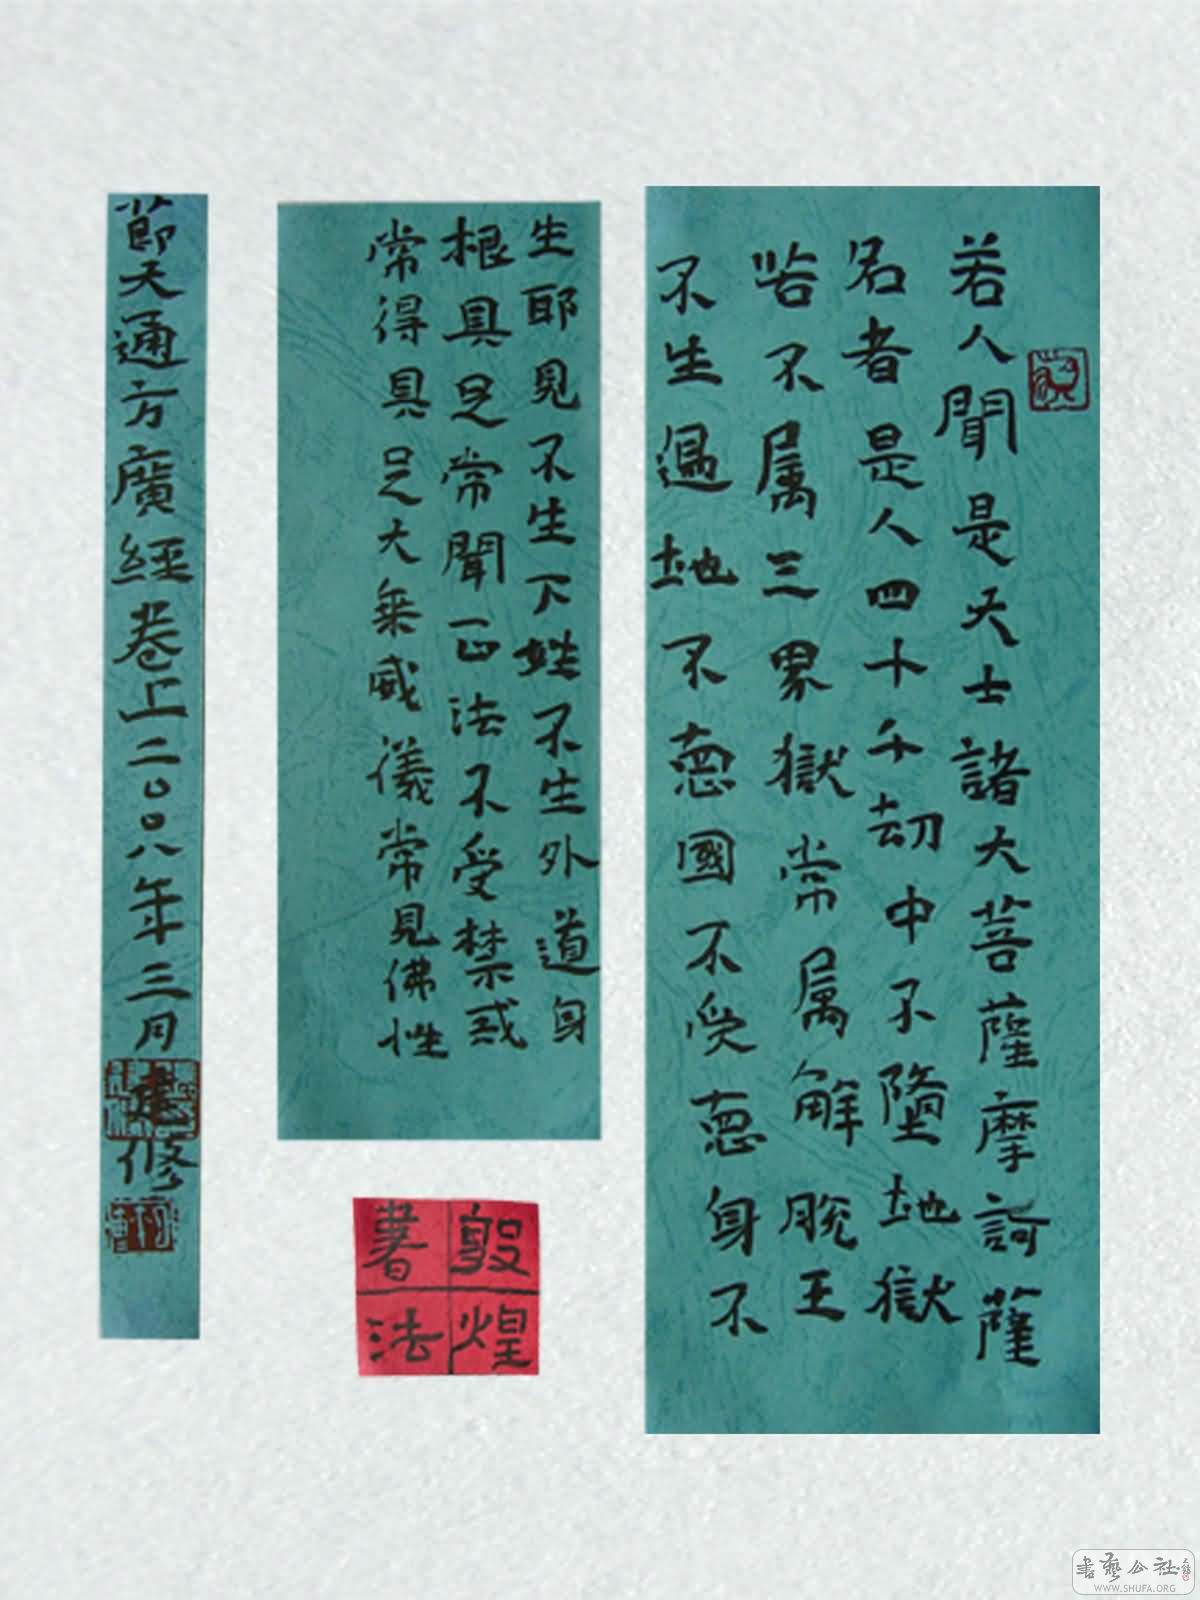 若人聞是大士諸大菩薩摩訶薩
名者是人四十千劫中不墮地獄
若不属三界獄常属解脫王
不生邊地不生惡國不受惡身不
生耶見不生下姓不生外道身
根具足常聞正法不受禁戒
常得具足大乘威儀常見佛性
節大通方廣經卷上二〇〇八年三月建修
敦煌
書法
書藝公社
WWW.SHUFA.ORG